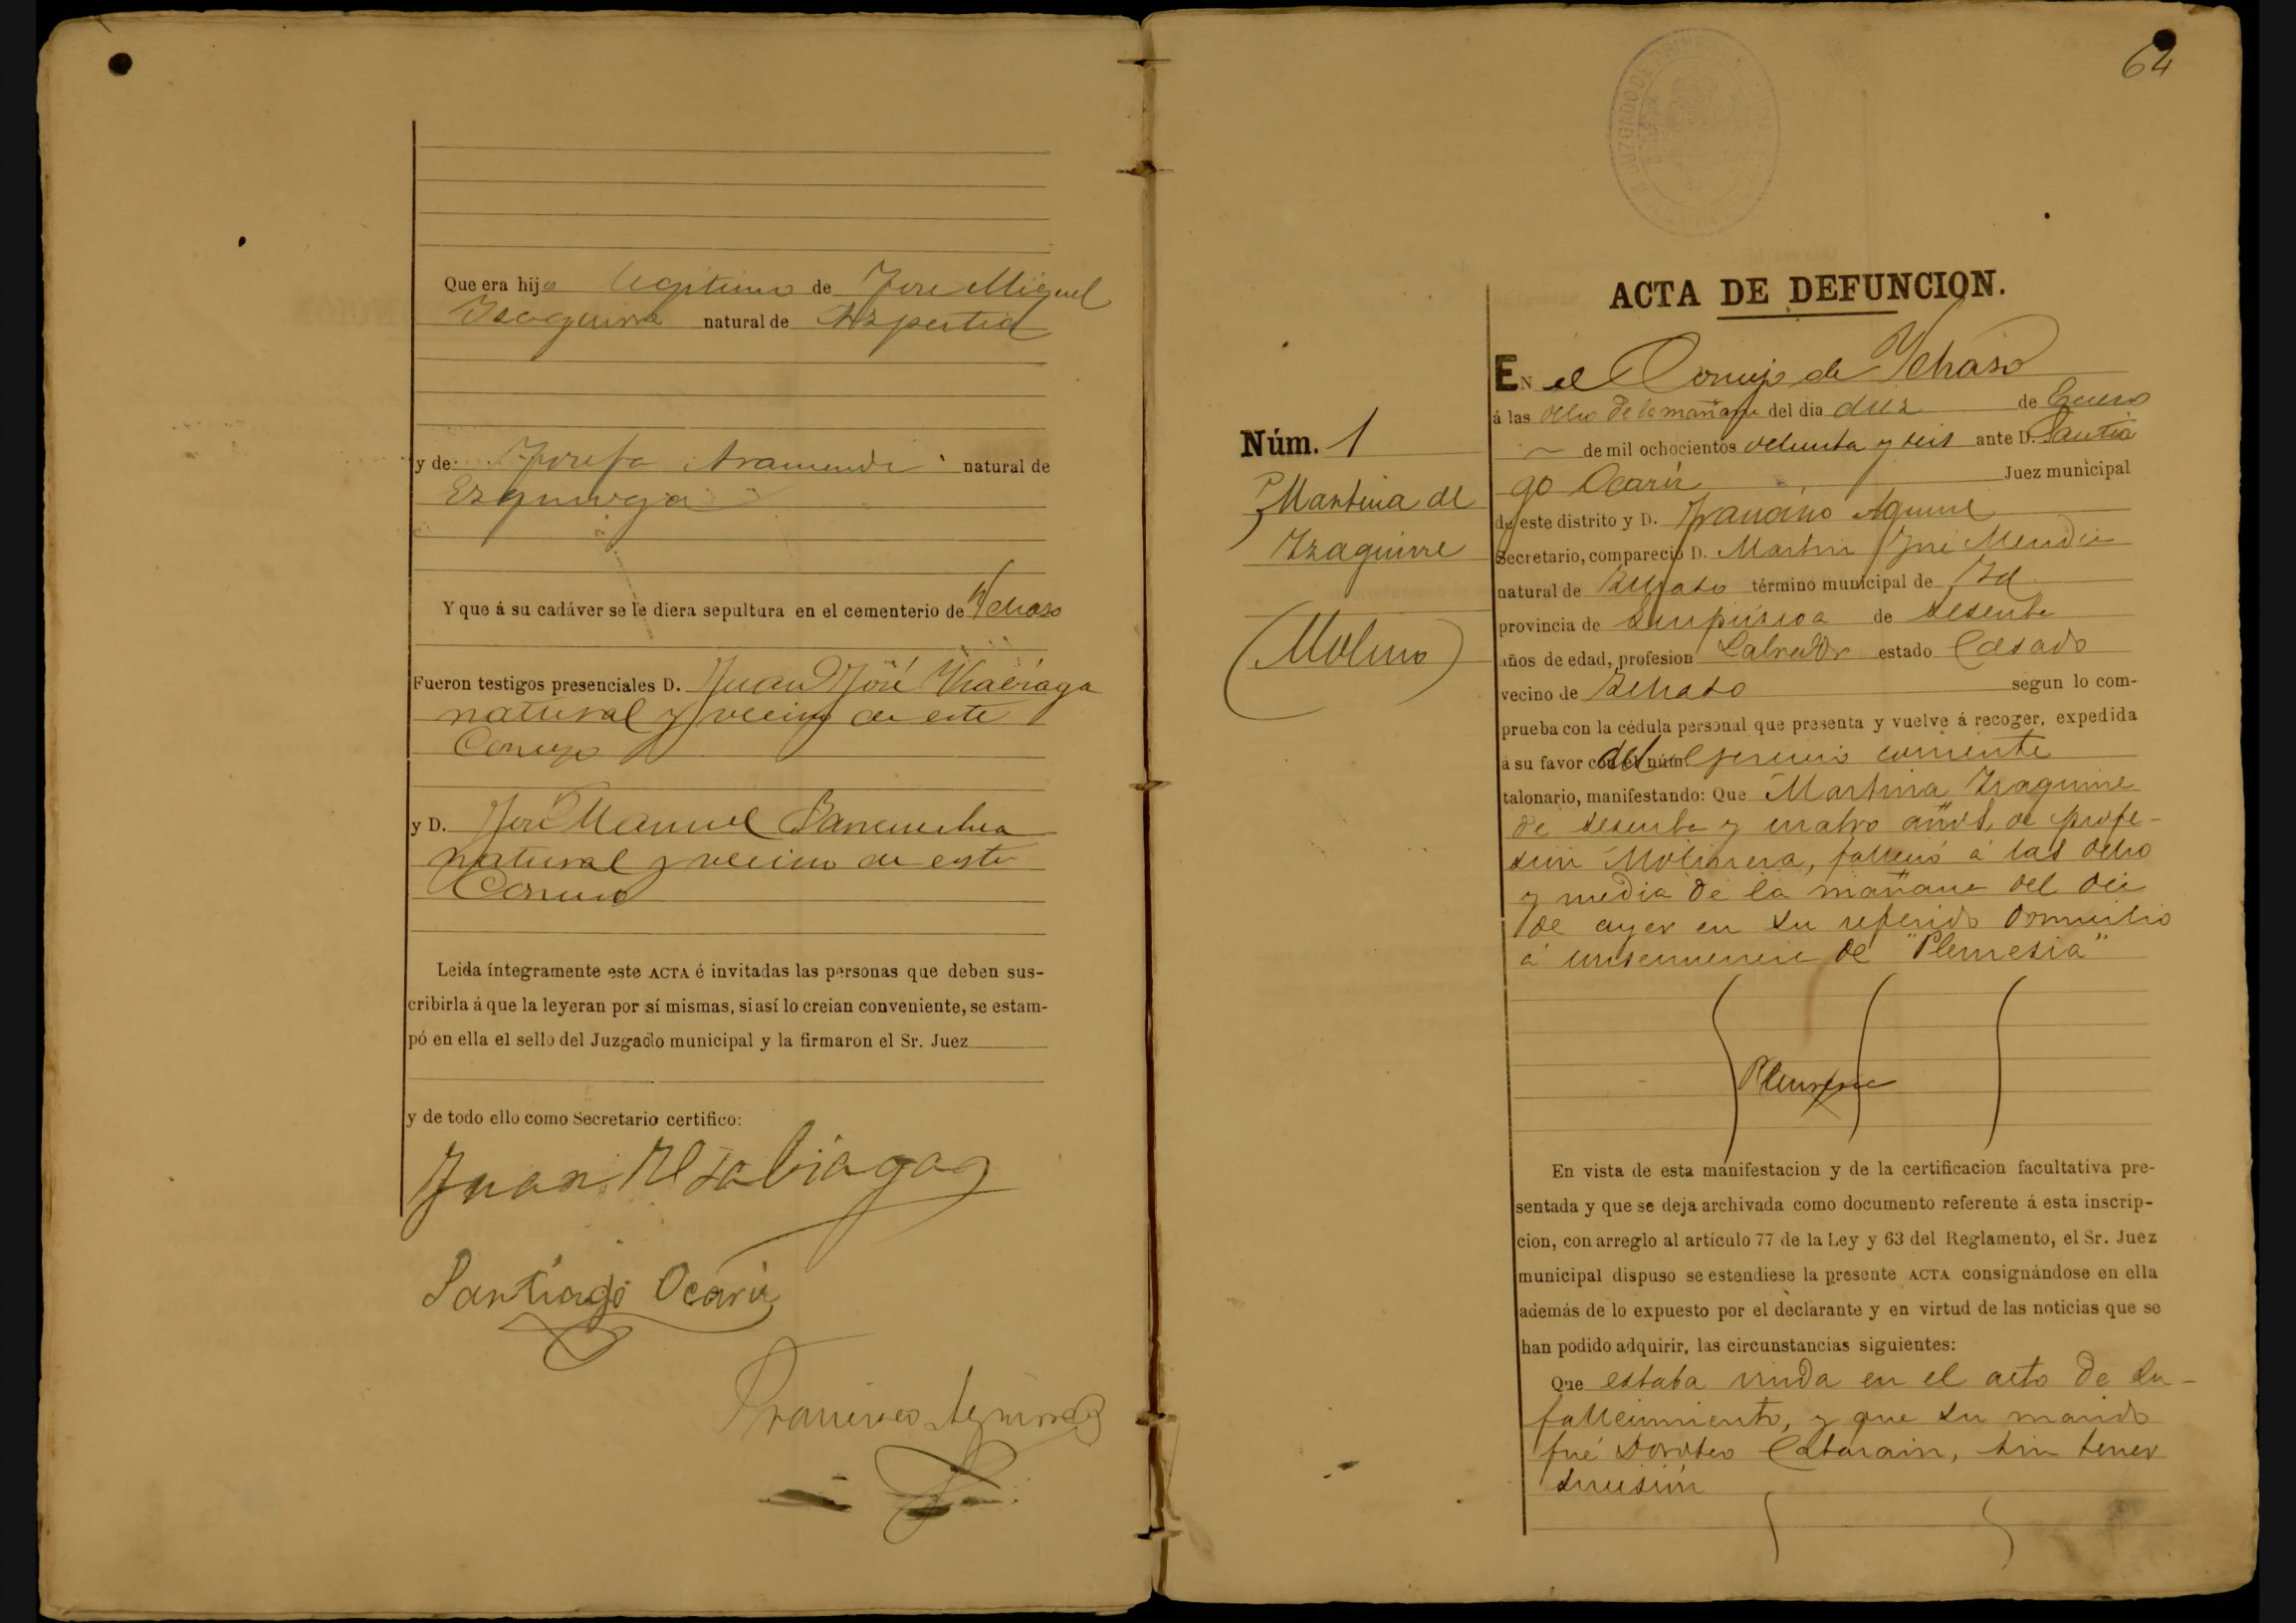 Que era hijo legítimo de José Miguel
Izaguirre natural de Azpeitia
y de Josefa Aramendi natural de
Ezquioga
Y que á su cadáver se le diera sepultura en el cementerio de Ychaso
Fueron testigos presenciales D. Juan José
natural y vecino de este
Concejo
y D. José Manuel
natural y vecino de este
Concejo
Leida íntegramente este ACTA é invitadas las personas que deben sus-
cribirla á que la leyeran por sí mismas, si así lo creian conveniente, se estam-
pó en ella el sello del Juzgado municipal y la firmaron el Sr. Juez
y de todo ello como Secretario certifico:
Juan
Santiago Ocariz
Francisco Aguirre
64
ACTA DE DEFUNCION.
Núm. 1
Martina de
Izaguirre
(Molino)
EN el Concejo de Ychaso
á las ocho de la mañana del dia diez de Enero
de mil ochocientos ochenta y seis ante D. Santia
go Ocariz Juez municipal
de este distrito y D. Francisco Aguirre
Secretario, compareció D. Martin José Mendia
natural de Ichaso término municipal de Id
provincia de Guipúzcoa de sesenta
años de edad, profesion Labrador estado Casado
vecino de Ichaso segun lo com-
prueba con la cédula personal que presenta y vuelve á recoger, expedida
á su favor con el núm. del ejercicio corriente
talonario, manifestando: Que Martina Izaguirre
de sesenta y cuatro años, de profe-
sion Molinera, falleció á las ocho
y media de la mañana del dia
de ayer en su referido domicilio
á consecuencia de "Pleuresia"
Pleuresia
En vista de esta manifestacion y de la certificacion facultativa pre-
sentada y que se deja archivada como documento referente á esta inscrip-
cion, con arreglo al artículo 77 de la Ley y 63 del Reglamento, el Sr. Juez
municipal dispuso se estendiese la presente ACTA consignándose en ella
además de lo expuesto por el declarante y en virtud de las noticias que se
han podido adquirir, las circunstancias siguientes:
Que estaba viuda en el acto de su
fallecimiento, y que su marido
fué Doroteo Catarain, sin tener
sucesión